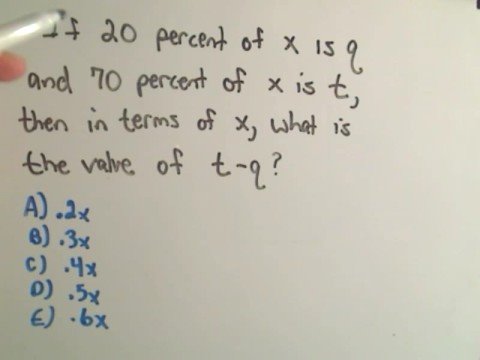 If 20 percent of x is q
and 70 percent of x is t,
then in terms of x, what is
the value of t-q?
A) .2x
B) .3x
C) .4x
D) .5x
E) .6x